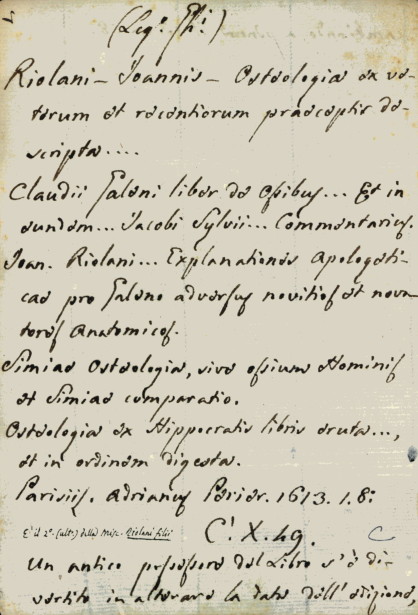 (Leg.° Phi.)
Riolani - Joannis - Osteologia ex ve-
terum et recentiorum praeceptis de-
scripta....
Claudii Galeni liber de ossibus... Et in
eundem... Jacobi Sylvii... Commentarius.
Joan. Riolani... Explanationes Apologeti-
cae pro Galeno adversus novitios et nova
tores Anatomicos.
Simiae Osteologia, sive ossium Hominis
et Simiae comparatio.
Osteologia ex Hippocratis libris eruta...,
et in ordinem digesta.
Parisiis. Adrianus Perier. 1613. 1.8:
È il 2.° (ult.) della Misc. Riolani filii
C.' X. 49.
Un antico possessore del Libro s'è di-
vertito in alterare la data dell'edizione,